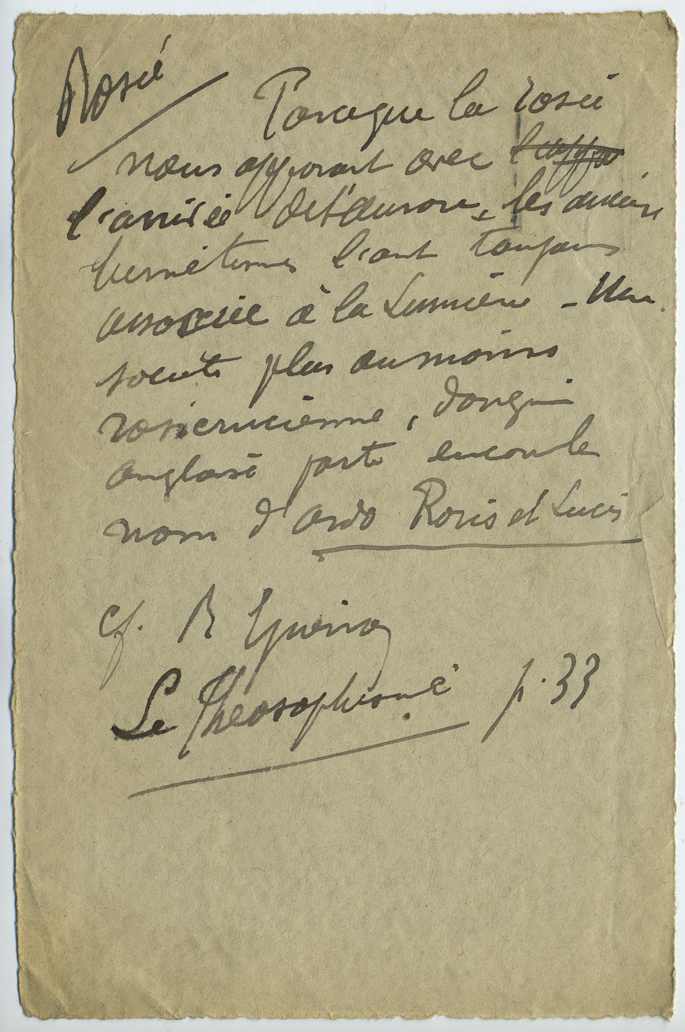 Rosée
Parceque la rosée
nous apparait avec
l'arrivée de l'aurore, les anciens
hermétistes l'ont toujours
associée à la Lumière - Une
société plus ou moins
rosicrucienne, d'origine
anglaise porte encore le
nom d'ordo Roris et Lucis
cf. R Guénon
Le Théosophisme p. 33